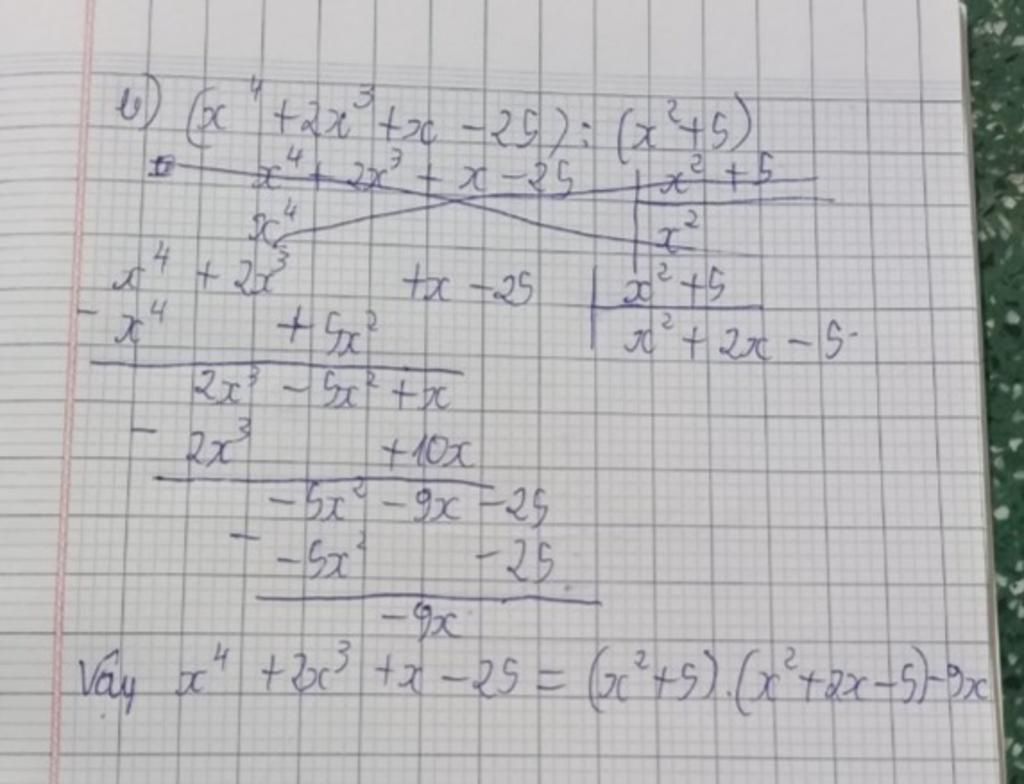 b) (x⁴ + 2x³ + x - 25) : (x² + 5)
x⁴ + 2x³ + x - 25 | x² + 5
x⁴ x²
x⁴ + 2x³ + x - 25 | x² + 5
- x⁴ + 5x² x² + 2x - 5
2x³ - 5x² + x
- 2x³ + 10x
- 5x² - 9x - 25
- - 5x² - 25
- 9x
Vậy x⁴ + 2x³ + x - 25 = (x² + 5).(x² + 2x - 5) - 9x